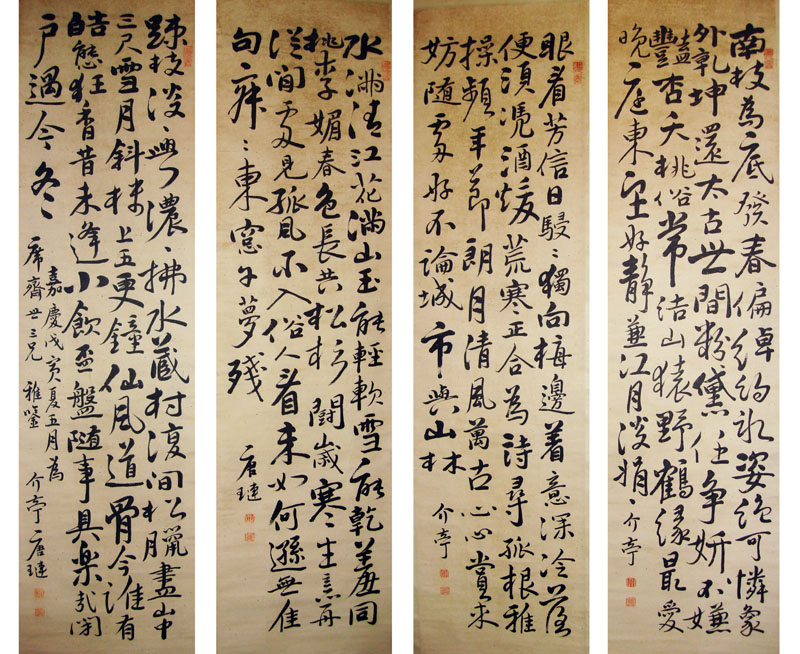 南枝為底發春偏綽約氷姿絶可憐象
外乾坤還太古世間粉黛任爭妍不嫌
豔杏夭桃俗常結山猿野鶴緣最愛
晚庭東望好靜兼江月淡娟〻介亭
眼看芳信日駸〻獨向梅邊着意深冷落
便須凭酒煖荒寒正合為詩尋孤根雅
操頻年節朗月清風萬古心〻賞未
妨隨處好不論城市與山林介亭
水滿清江花滿山玉能輕軟雪能乾羞同
桃李媚春色長共松杉鬪歲寒生意再
從閒處見孤風不入俗人看來如何遜無佳
句寂〻東窗午夢殘唐璉
疎枝淡〻與濃〻拂水藏村復間松臘盡山中
三尺雪月斜樓上五更鐘仙風道骨今誰有
皓態狂香昔未逢小飲盃盤隨事具樂哉閉
户過今冬
嘉慶戊寅夏五月為
席齋世三兄雅鑒介亭唐璉